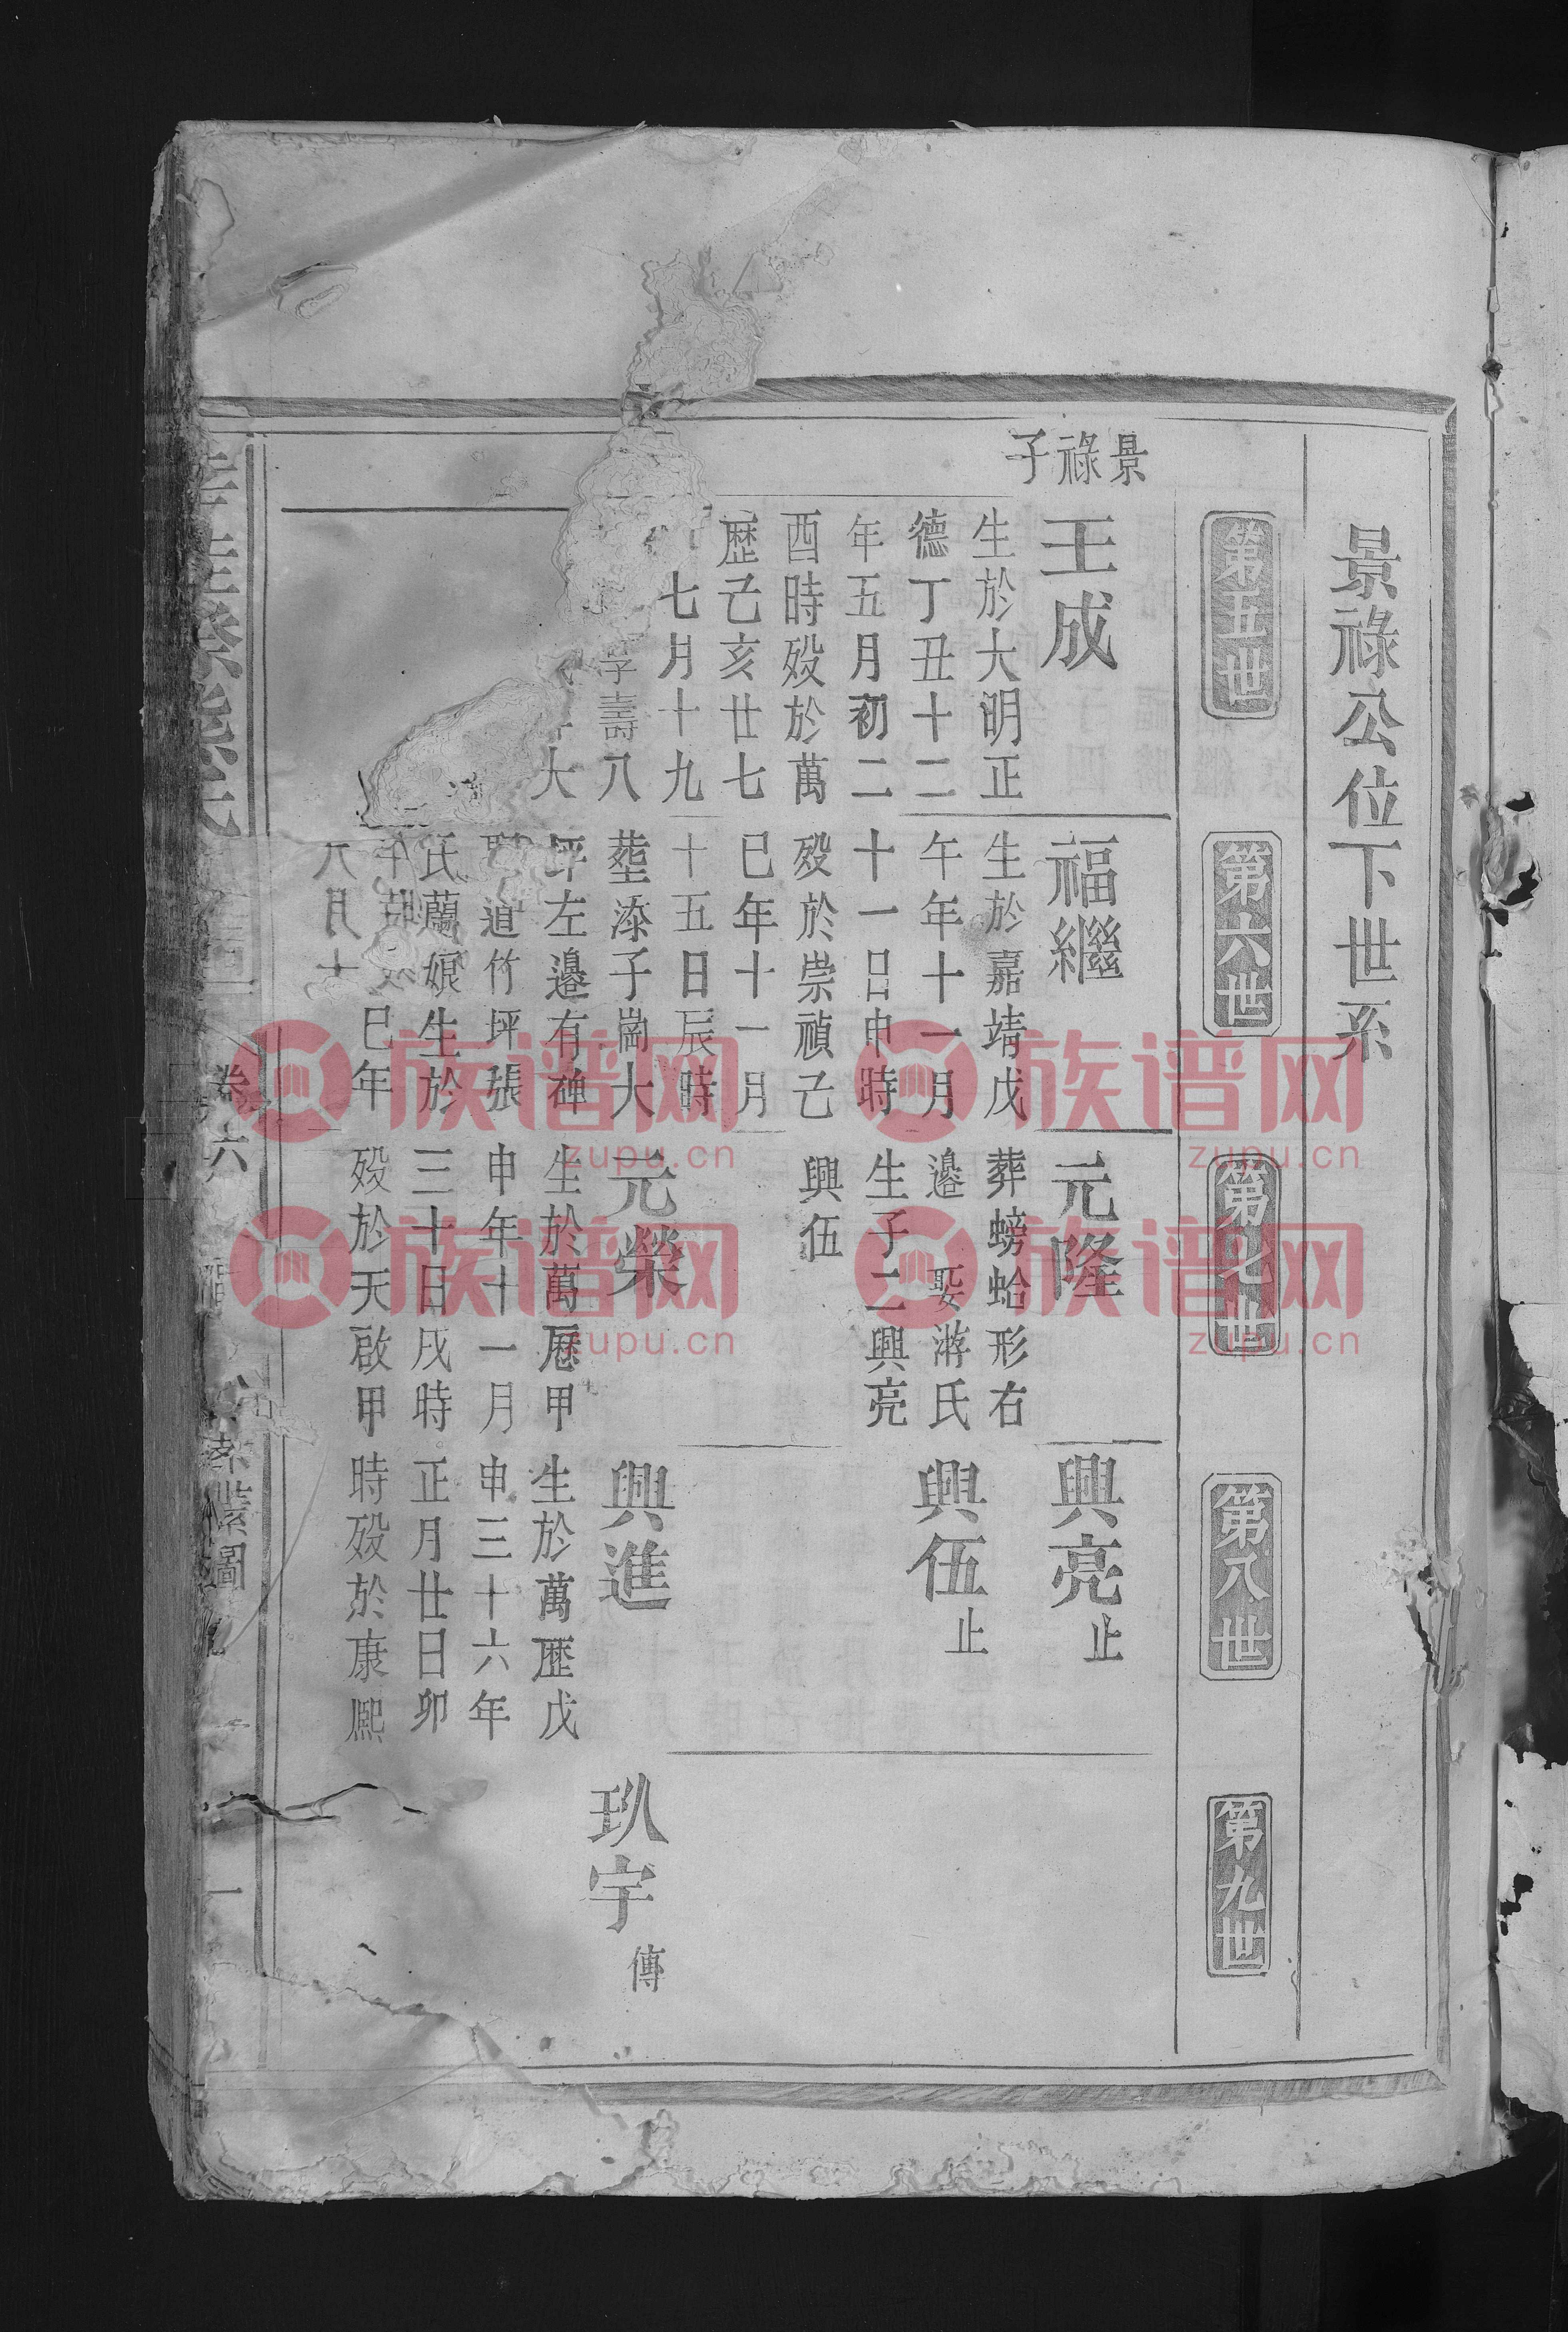 景祿公位下世系
第五世
第六世
第七世
第八世
第九世
景祿子
王成
生於大明正
德丁丑十二
年五月初二
酉時歿於萬
歷己亥廿七
七月十九
字壽八
大
福繼
生於嘉靖戊
午年十一月
十一日申時
歿於崇禎己
巳年十一月
十五日辰時
塟漆子崗大
坪左邉有碑
道竹坪張
氏蘭娘生於
巳年
八月十
元隆
葬螃蛤形右
邉 娶游氏
生子二興亮
興伍
元榮
生於萬厯甲
申年十一月
三十日戌時
歿於天啟甲
興亮止
興伍止
興進
生於萬歷戊
申三十六年
正月廿日卯
時歿於康熈
玖宇傳
卷六
一
族谱网
zupu.cn
族谱网
zupu.cn
族谱网
zupu.cn
族谱网
zupu.cn